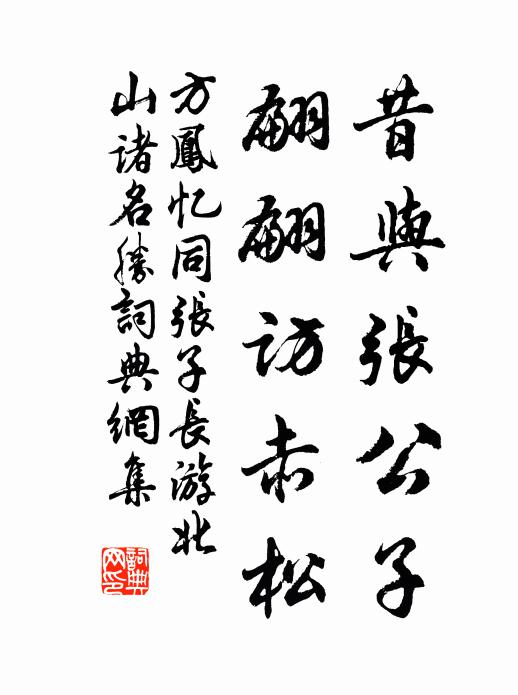 昔與張公子
翩翩訪赤松
方鳳忆同張子長游北
山諸名勝詞典網集
詞典
网印